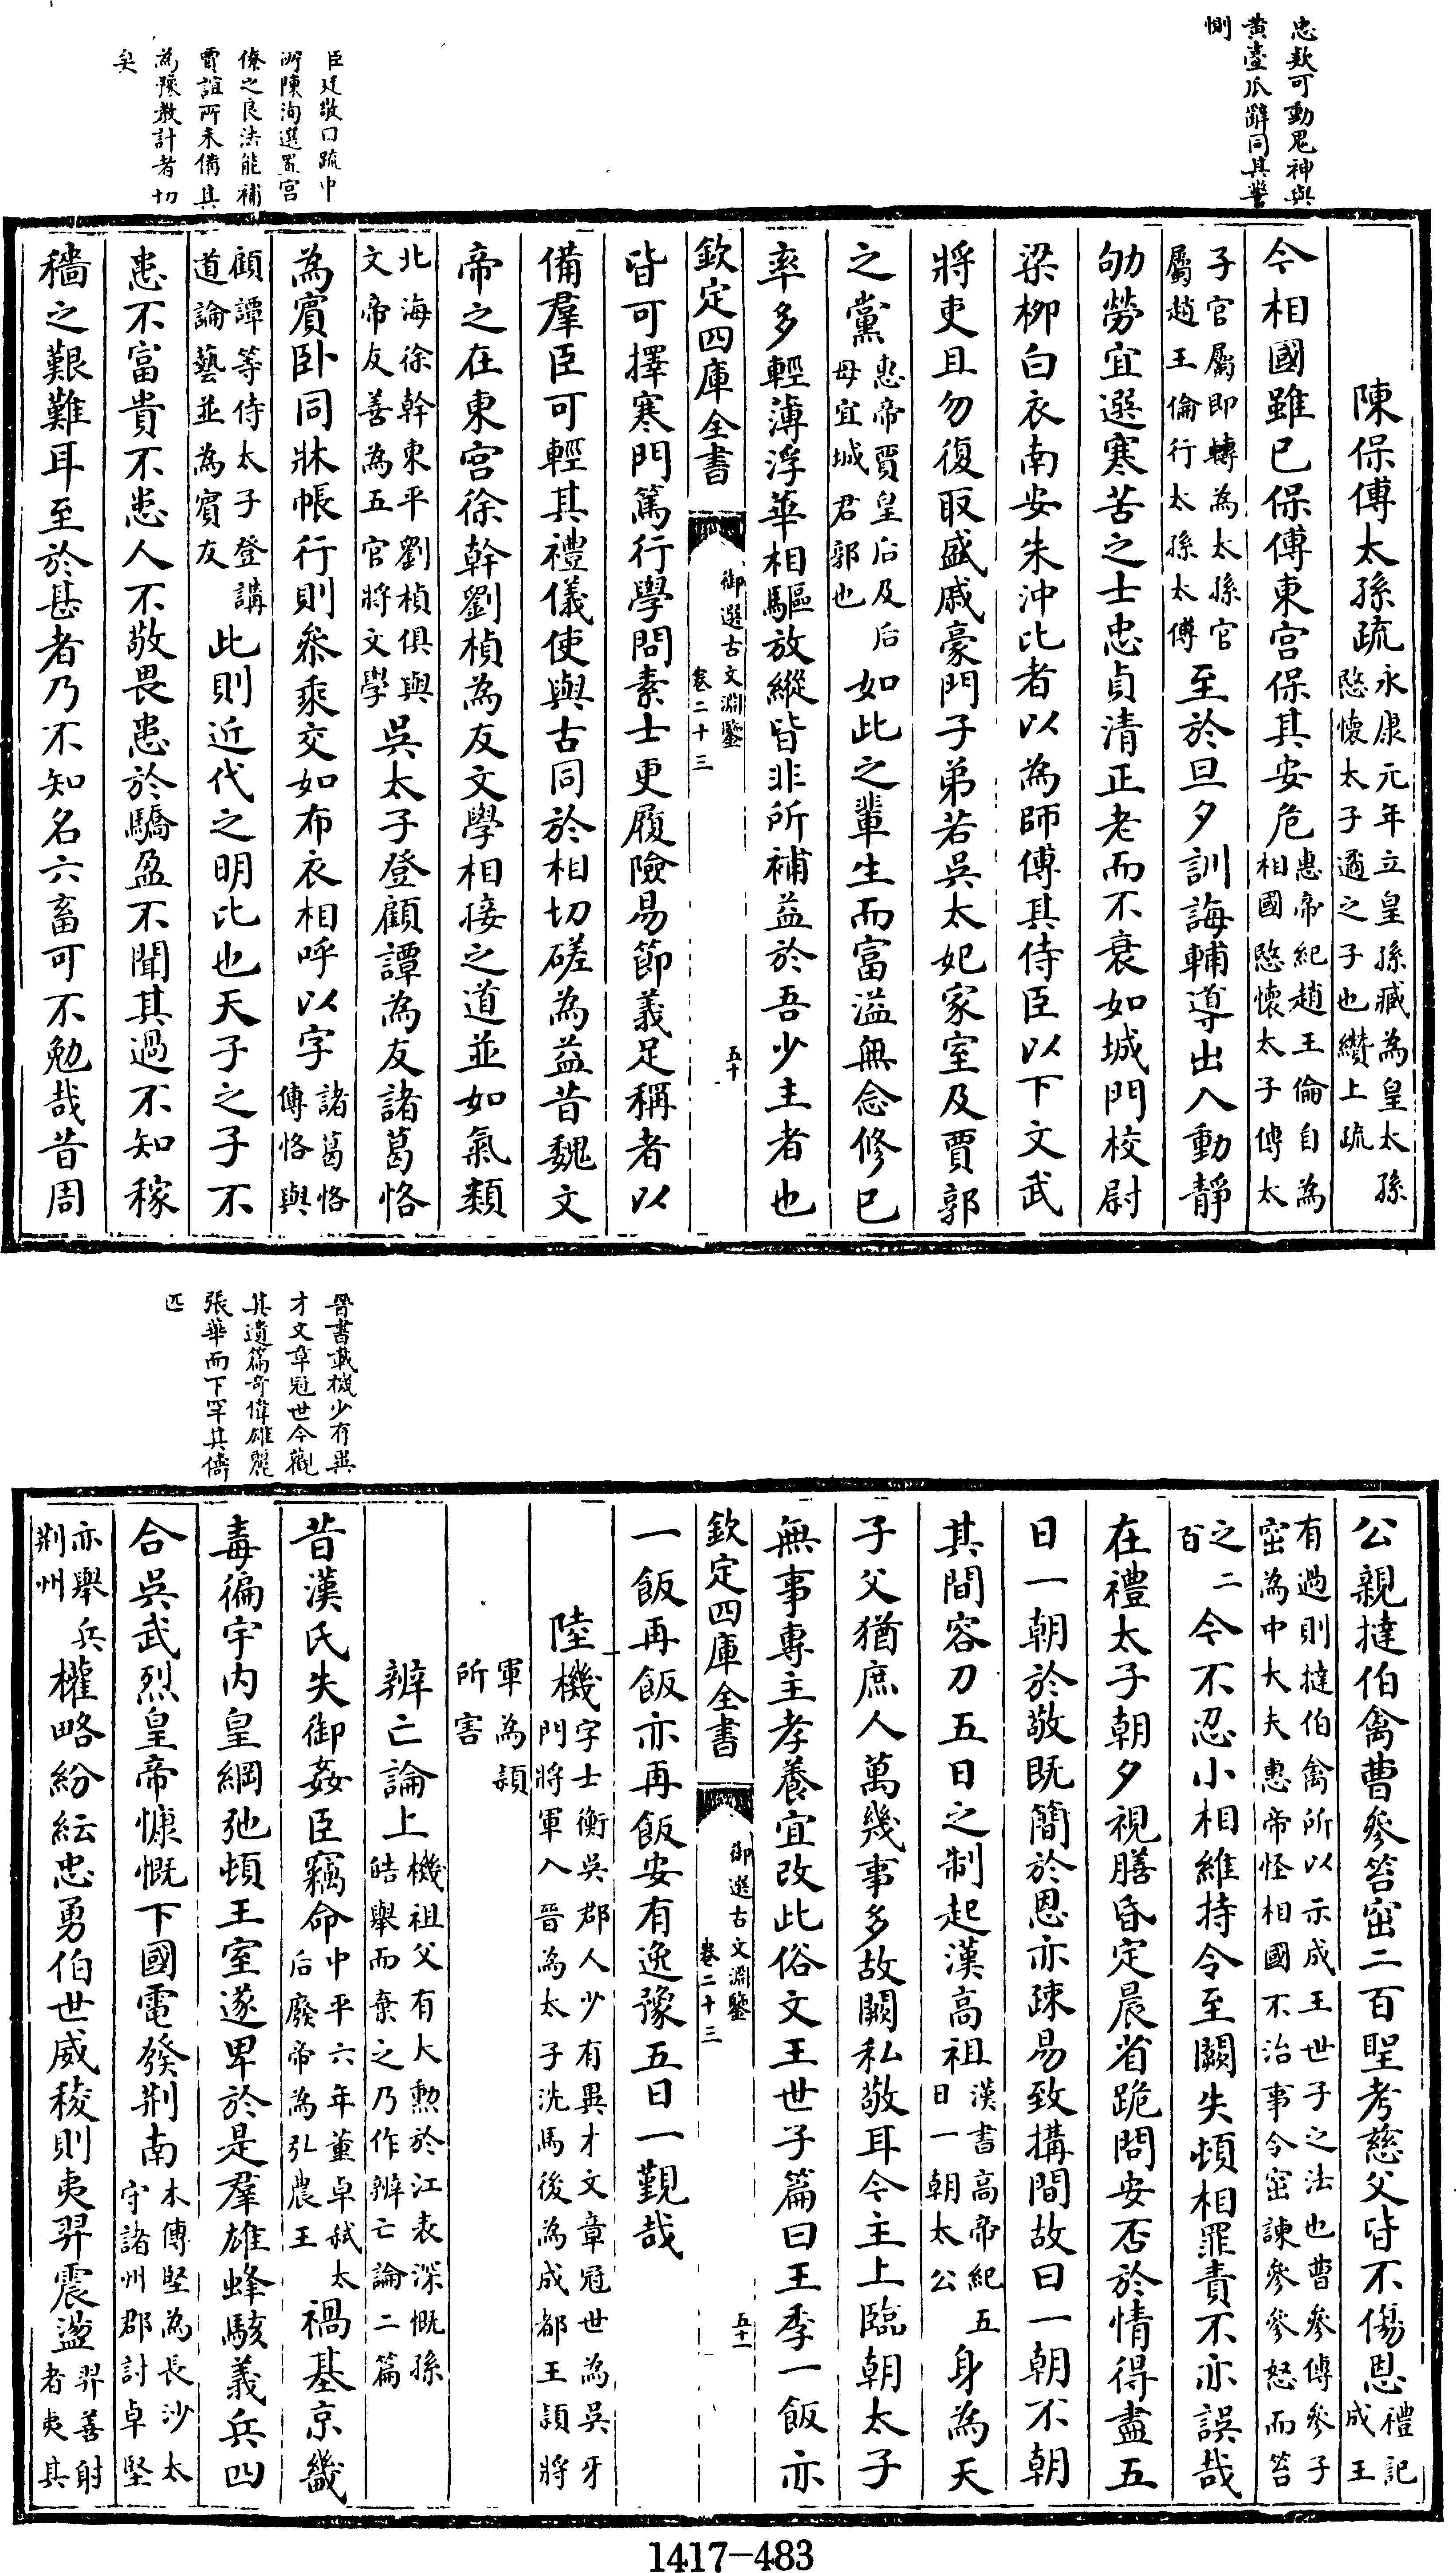 忠欵可動鬼神與
黄臺瓜辭同其悽
惻
臣廷敬曰疏中
所陳洵選置宫
僚之良法能補
賈誼所未備其
為豫教計者切
矣
陳保傅太孫疏永康元年立皇孫臧為皇太孫
愍懷太子遹之子也纘上疏
今相國雖已保傅東宫保其安危惠帝紀趙王倫自為
相國愍懷太子傅太
子官屬即轉為太孫官
屬趙王倫行太孫太傅至於旦夕訓誨輔導出入動靜
劬勞宜選寒苦之士忠貞清正老而不衰如城門校尉
梁柳白衣南安朱沖比者以為師傅其侍臣以下文武
將吏且勿復取盛戚豪門子弟若吳太妃家室及賈郭
之黨惠帝賈皇后及后
母宜城君郭也如此之輩生而富溢無念修已
率多輕薄浮華相驅放縱皆非所補益於吾少主者也
欽定四庫全書
御選古文淵鑒
卷二十三
五十
皆可擇寒門篤行學問素士更履險易節義足稱者以
備羣臣可輕其禮儀使與古同於相切磋為益昔魏文
帝之在東宫徐幹劉楨為友文學相接之道並如氣類
北海徐幹東平劉楨俱與
文帝友善為五官將文學吳太子登顧譚為友諸葛恪
為賓卧同牀帳行則參乘交如布衣相呼以字諸葛恪
傳恪與
顧譚等侍太子登講
道論藝並為賓友此則近代之明比也天子之子不
患不富貴不患人不敬畏患於驕盈不聞其過不知稼
穡之艱難耳至於甚者乃不知名六畜可不勉哉昔周
晉書載機少有異
才文章冠世今觀
其遺篇奇偉雄麗
張華而下罕其儔
匹
公親撻伯禽曹參笞窋二百聖考慈父皆不傷恩禮記
成王
有過則撻伯禽所以示成王世子之法也曹參傳參子
窋為中大夫惠帝怪相國不治事令窋諫參參怒而笞
之二
百今不忍小相維持令至闕失頓相罪責不亦誤哉
在禮太子朝夕視膳昏定晨省跪問安否於情得盡五
日一朝於敬既簡於恩亦疎易致搆間故曰一朝不朝
其間容刀五日之制起漢高祖漢書高帝紀五
日一朝太公身為天
子父猶庶人萬幾事多故闕私敬耳今主上臨朝太子
無事專主孝養宜改此俗文王世子篇曰王季一飯亦
欽定四庫全書
御選古文淵鑒
卷二十三
五十一
一飯再飯亦再飯安有逸豫五日一覲哉
陸機字士衡吳郡人少有異才文章冠世為吳牙
門將軍入晉為太子洗馬後為成都王頴將
軍為頴
所害
辨亡論上機祖父有大勲於江表深慨孫
皓舉而棄之乃作辨亡論二篇
昔漢氏失御姦臣竊命中平六年董卓弑太
后廢帝為弘農王禍基京畿
毒徧宇内皇綱弛頓王室遂卑於是羣雄蜂駭義兵四
合吳武烈皇帝慷慨下國電發荆南本傳堅為長沙太
守諸州郡討卓堅
亦舉兵
荆州權略紛紜忠勇伯世威稜則夷羿震盪羿善射
者夷其
1417-483